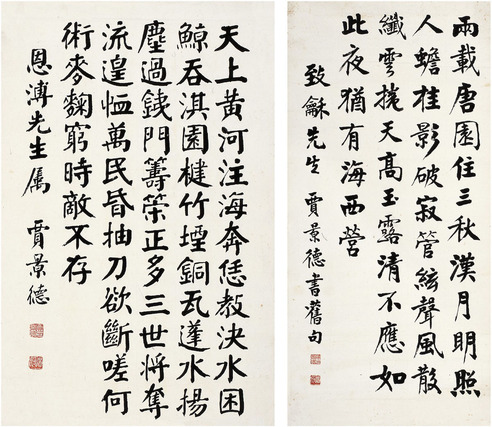 兩載唐園住三秋漢月明照
人蟾桂影破寂管絃聲風散
纖雲捲天高玉露清不應如
此夜猶有海西營
致龢先生 賈景德書舊句
天上黃河注海奔恁教決水困
鯨吞淇園楗竹堙銅瓦蓬水揚
塵過銕門籌筴正多三世將奪
流遑恤萬民昏抽刀欲斷嗟何
術麥麴窮時敵不存
恩溥先生属 賈景德